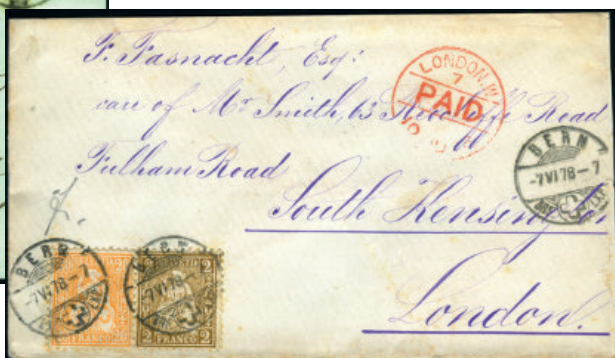 F. Fasnacht, Esq:
care of Mr Smith, 63 Road
Fulham Road
South Kensington
London.
LONDON.W
7
PAID
BERN
-7 VI 78 - 7
BERN
-7 VI 78 - 7
BERN
-7 VI 78
FRANCO
2 2
2 FRANCO 2